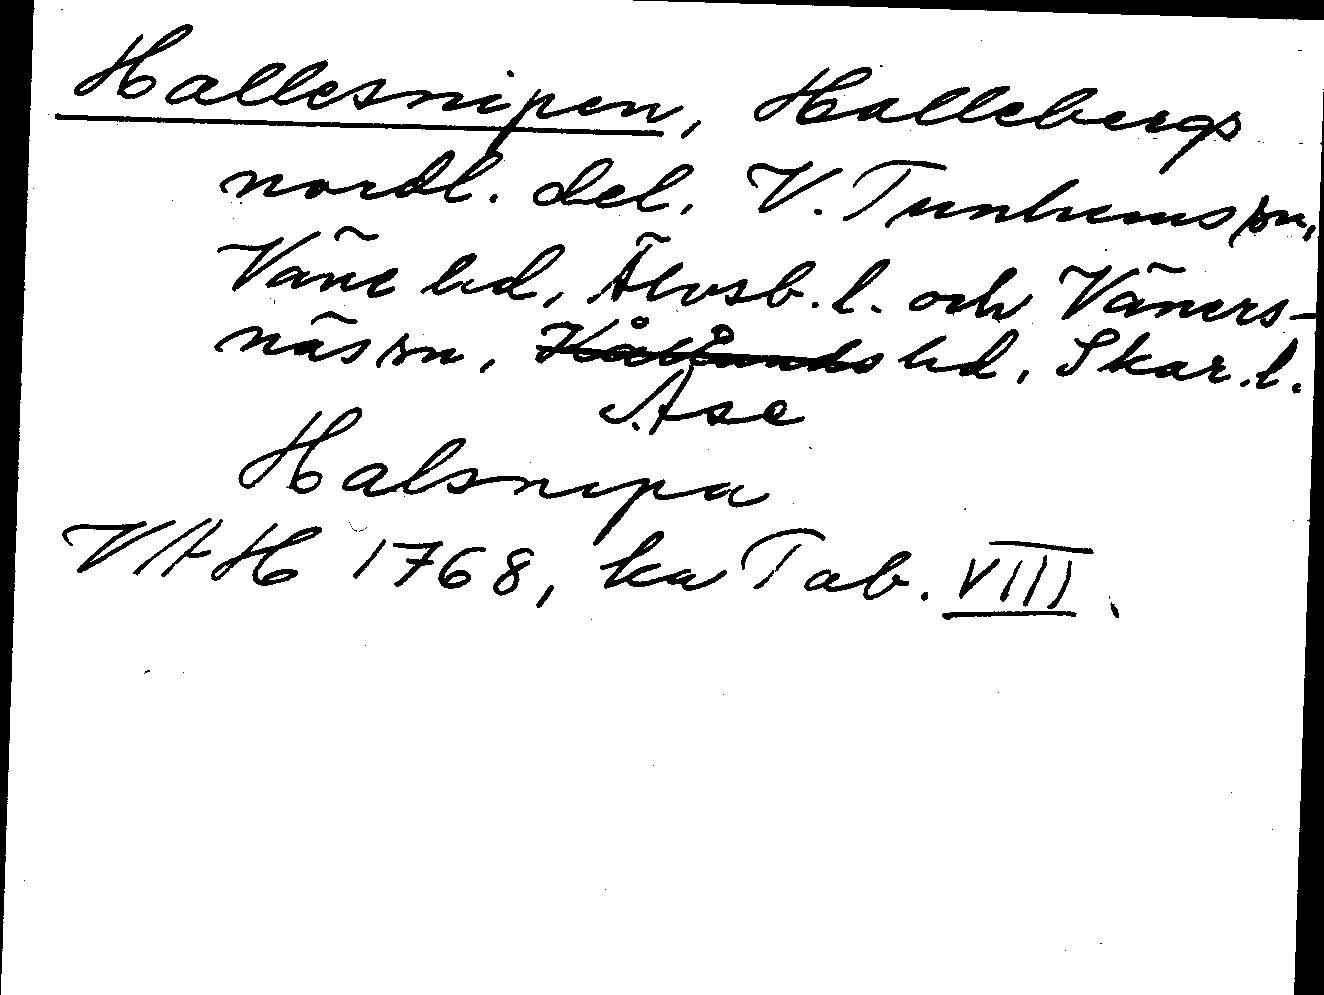 Hallesnipen, Hallebergs
nordl. del, V. Tunhems sn,
Väne hd, Älvsb. l. och Väners-
näs sn, Kållands hd, Skar. l.
Åse
Halsnipa
VAH 1768, ka Tab. VIII.